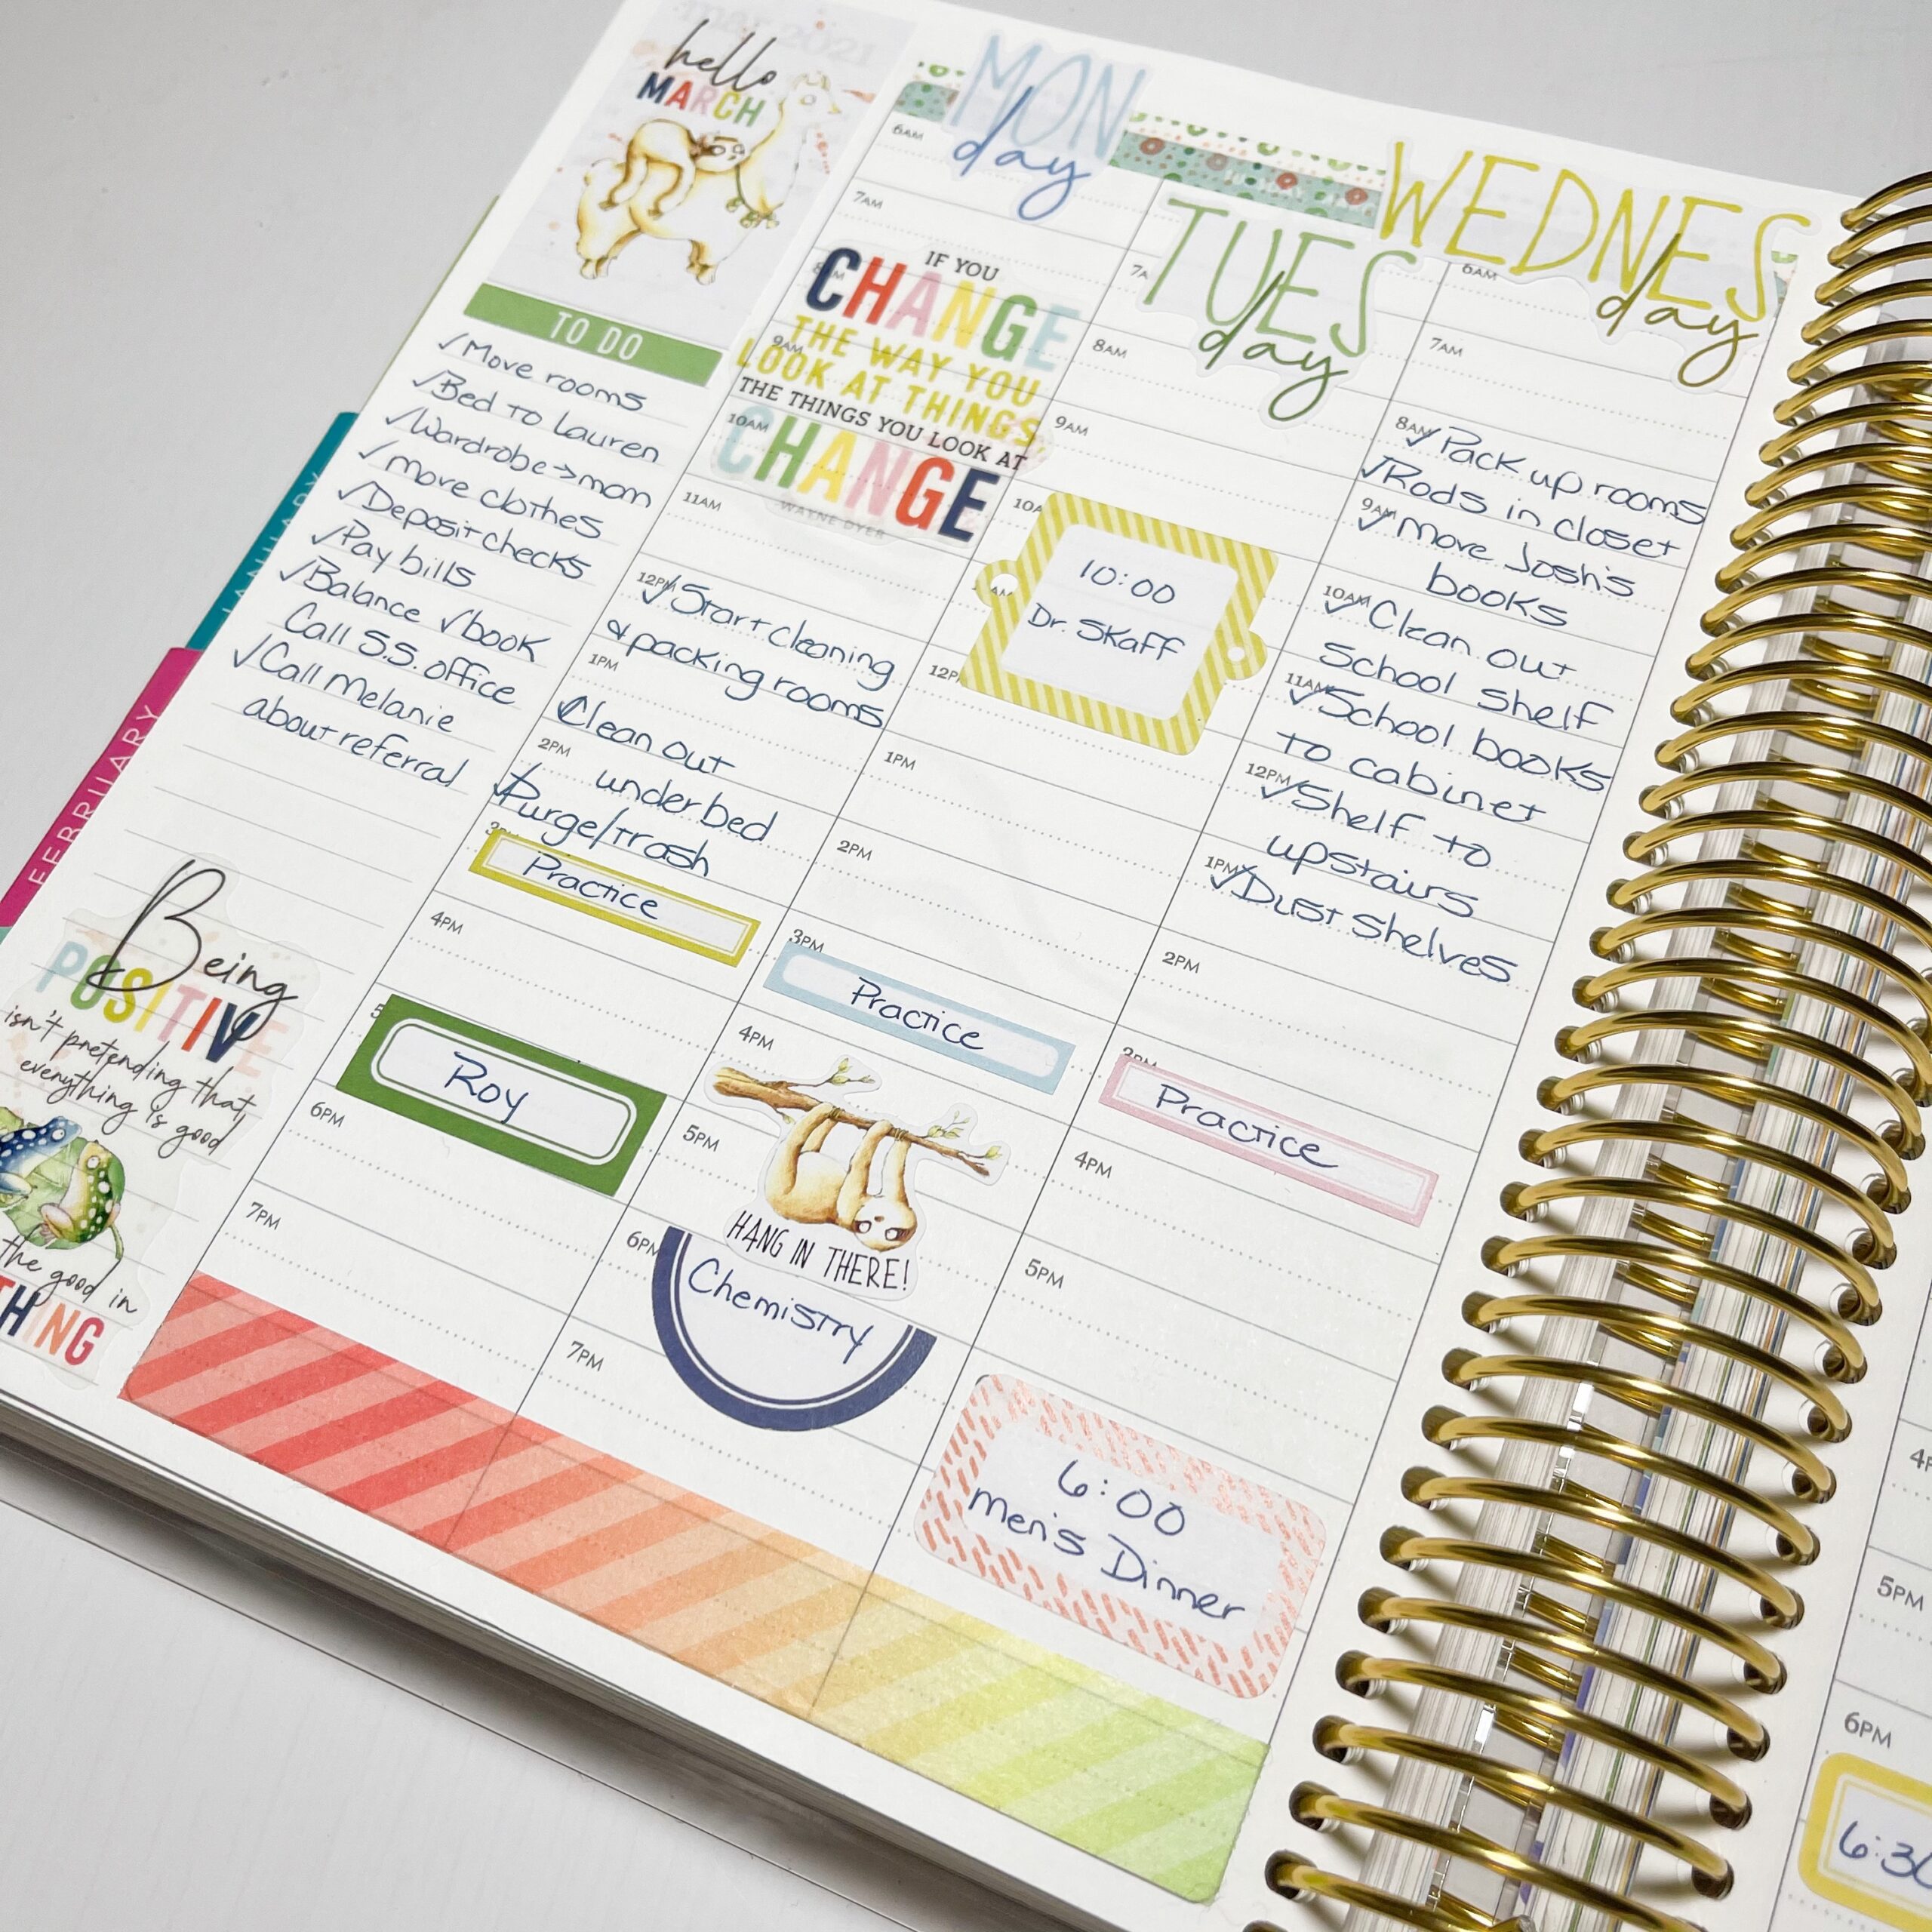 mar 2021
hello
MARCH
TO DO
✓Move rooms
✓Bed to Lauren
✓Wardrobe→mom
✓move clothes
✓Deposit checks
✓Pay bills
✓Balance ✓book
Call S.S. office
✓Call Melanie
about referral
Being
POSITIVE
isn't pretending that
everything is good
the good in
THING
JANUARY
FEBRUARY
MON
day
6AM
7AM
8AM
IF YOU
CHANGE
THE WAY YOU
9AM
LOOK AT THINGS,
THE THINGS YOU LOOK AT
10AM
CHANGE
WAYNE DYER
11AM
12PM
✓Start cleaning
& packing rooms
1PM
✓Clean out
2PM
under bed
✓Purge/trash
3PM
Practice
4PM
5
Roy
6PM
7PM
TUES
day
7A
8AM
9AM
10A
10:00
Dr. Skaff
AM
12P
1PM
2PM
3PM
Practice
4PM
5PM
HANG IN THERE!
6PM
Chemistry
7PM
WEDNES
day
6AM
7AM
8AM
✓Pack up rooms
✓Rods in closet
9AM
✓Move Josh's
books
10AM
✓Clean out
school shelf
11AM
✓School books
to cabinet
12PM
✓Shelf to
upstairs
1PM
✓Dust shelves
2PM
3PM
Practice
4PM
5PM
6:00
men's Dinner
4P
5PM
6PM
6:30